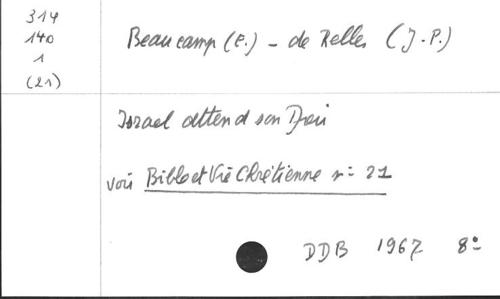 314
140
1
(21)
Beaucamp (E.) - de Relles (J.P.)
Israel attend son Dieu
voir Bible et Vie Chrétienne n= 21
DDB 1967 8º